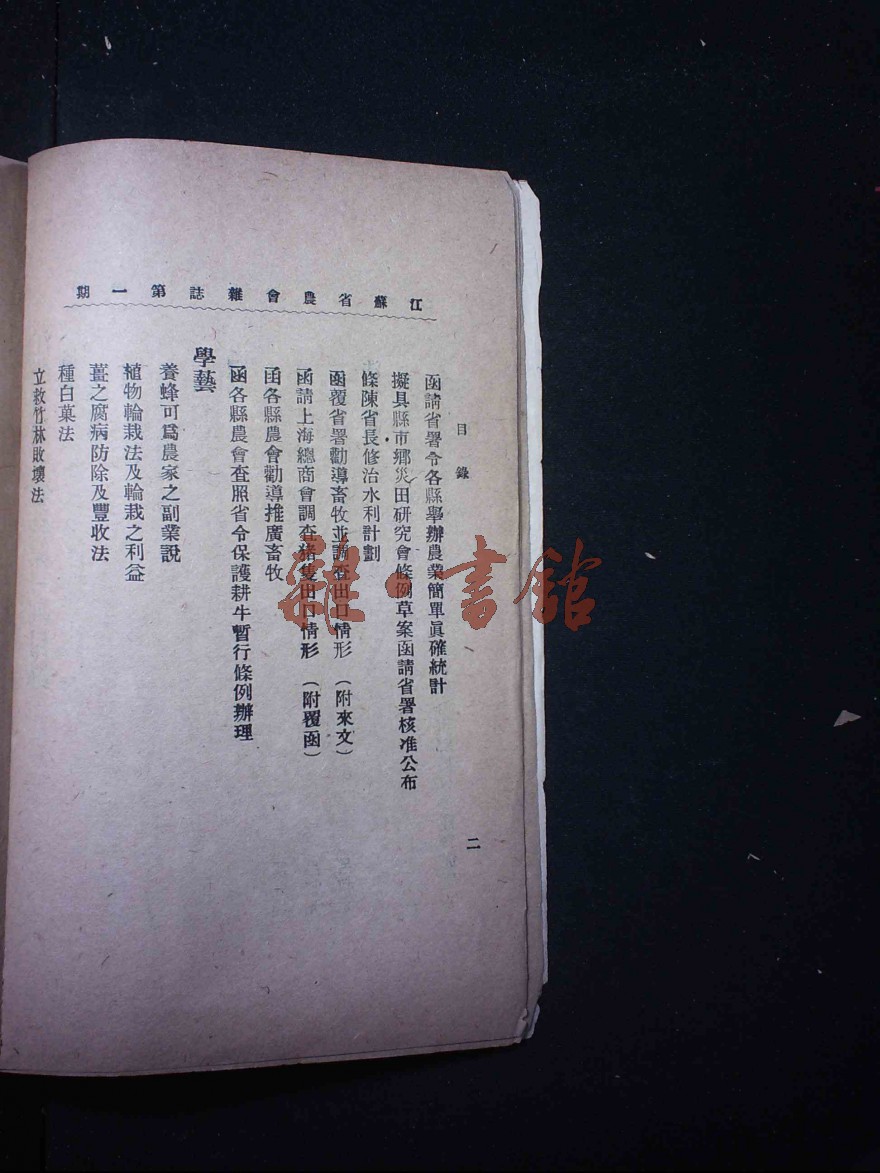 江蘇省農會雜誌第一期
目錄
二
函請省署令各縣舉辦農業簡單眞確統計
擬具縣市鄉災田研究會條例草案函請省署核准公布
條陳省長修治水利計劃
函覆省署勸導畜牧並調查出口情形（附來文）
函請上海總商會調查豬隻出口情形（附覆函）
函各縣農會勸導推廣畜牧
函各縣農會查照省令保護耕牛暫行條例辦理
學藝
養蜂可爲農家之副業說
植物輪栽法及輪栽之利益
薑之腐病防除及豐收法
種白菓法
立救竹林敗壞法
雜·書館